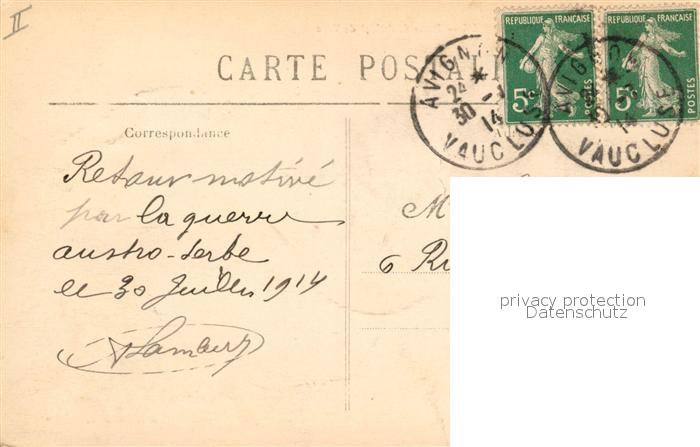 II
CARTE POSTALE
REPUBLIQUE FRANÇAISE
5c
POSTES
REPUBLIQUE FRANÇAISE
5c
POSTES
AVIGNON
24
30
14
VAUCLUSE
AVIGNON
14
VAUCLUSE
Correspondance
Retour motivé
par la guerre
austro-serbe
le 30 Juillet 1914
Lambert
M
6 Ru
privacy protection
Datenschutz